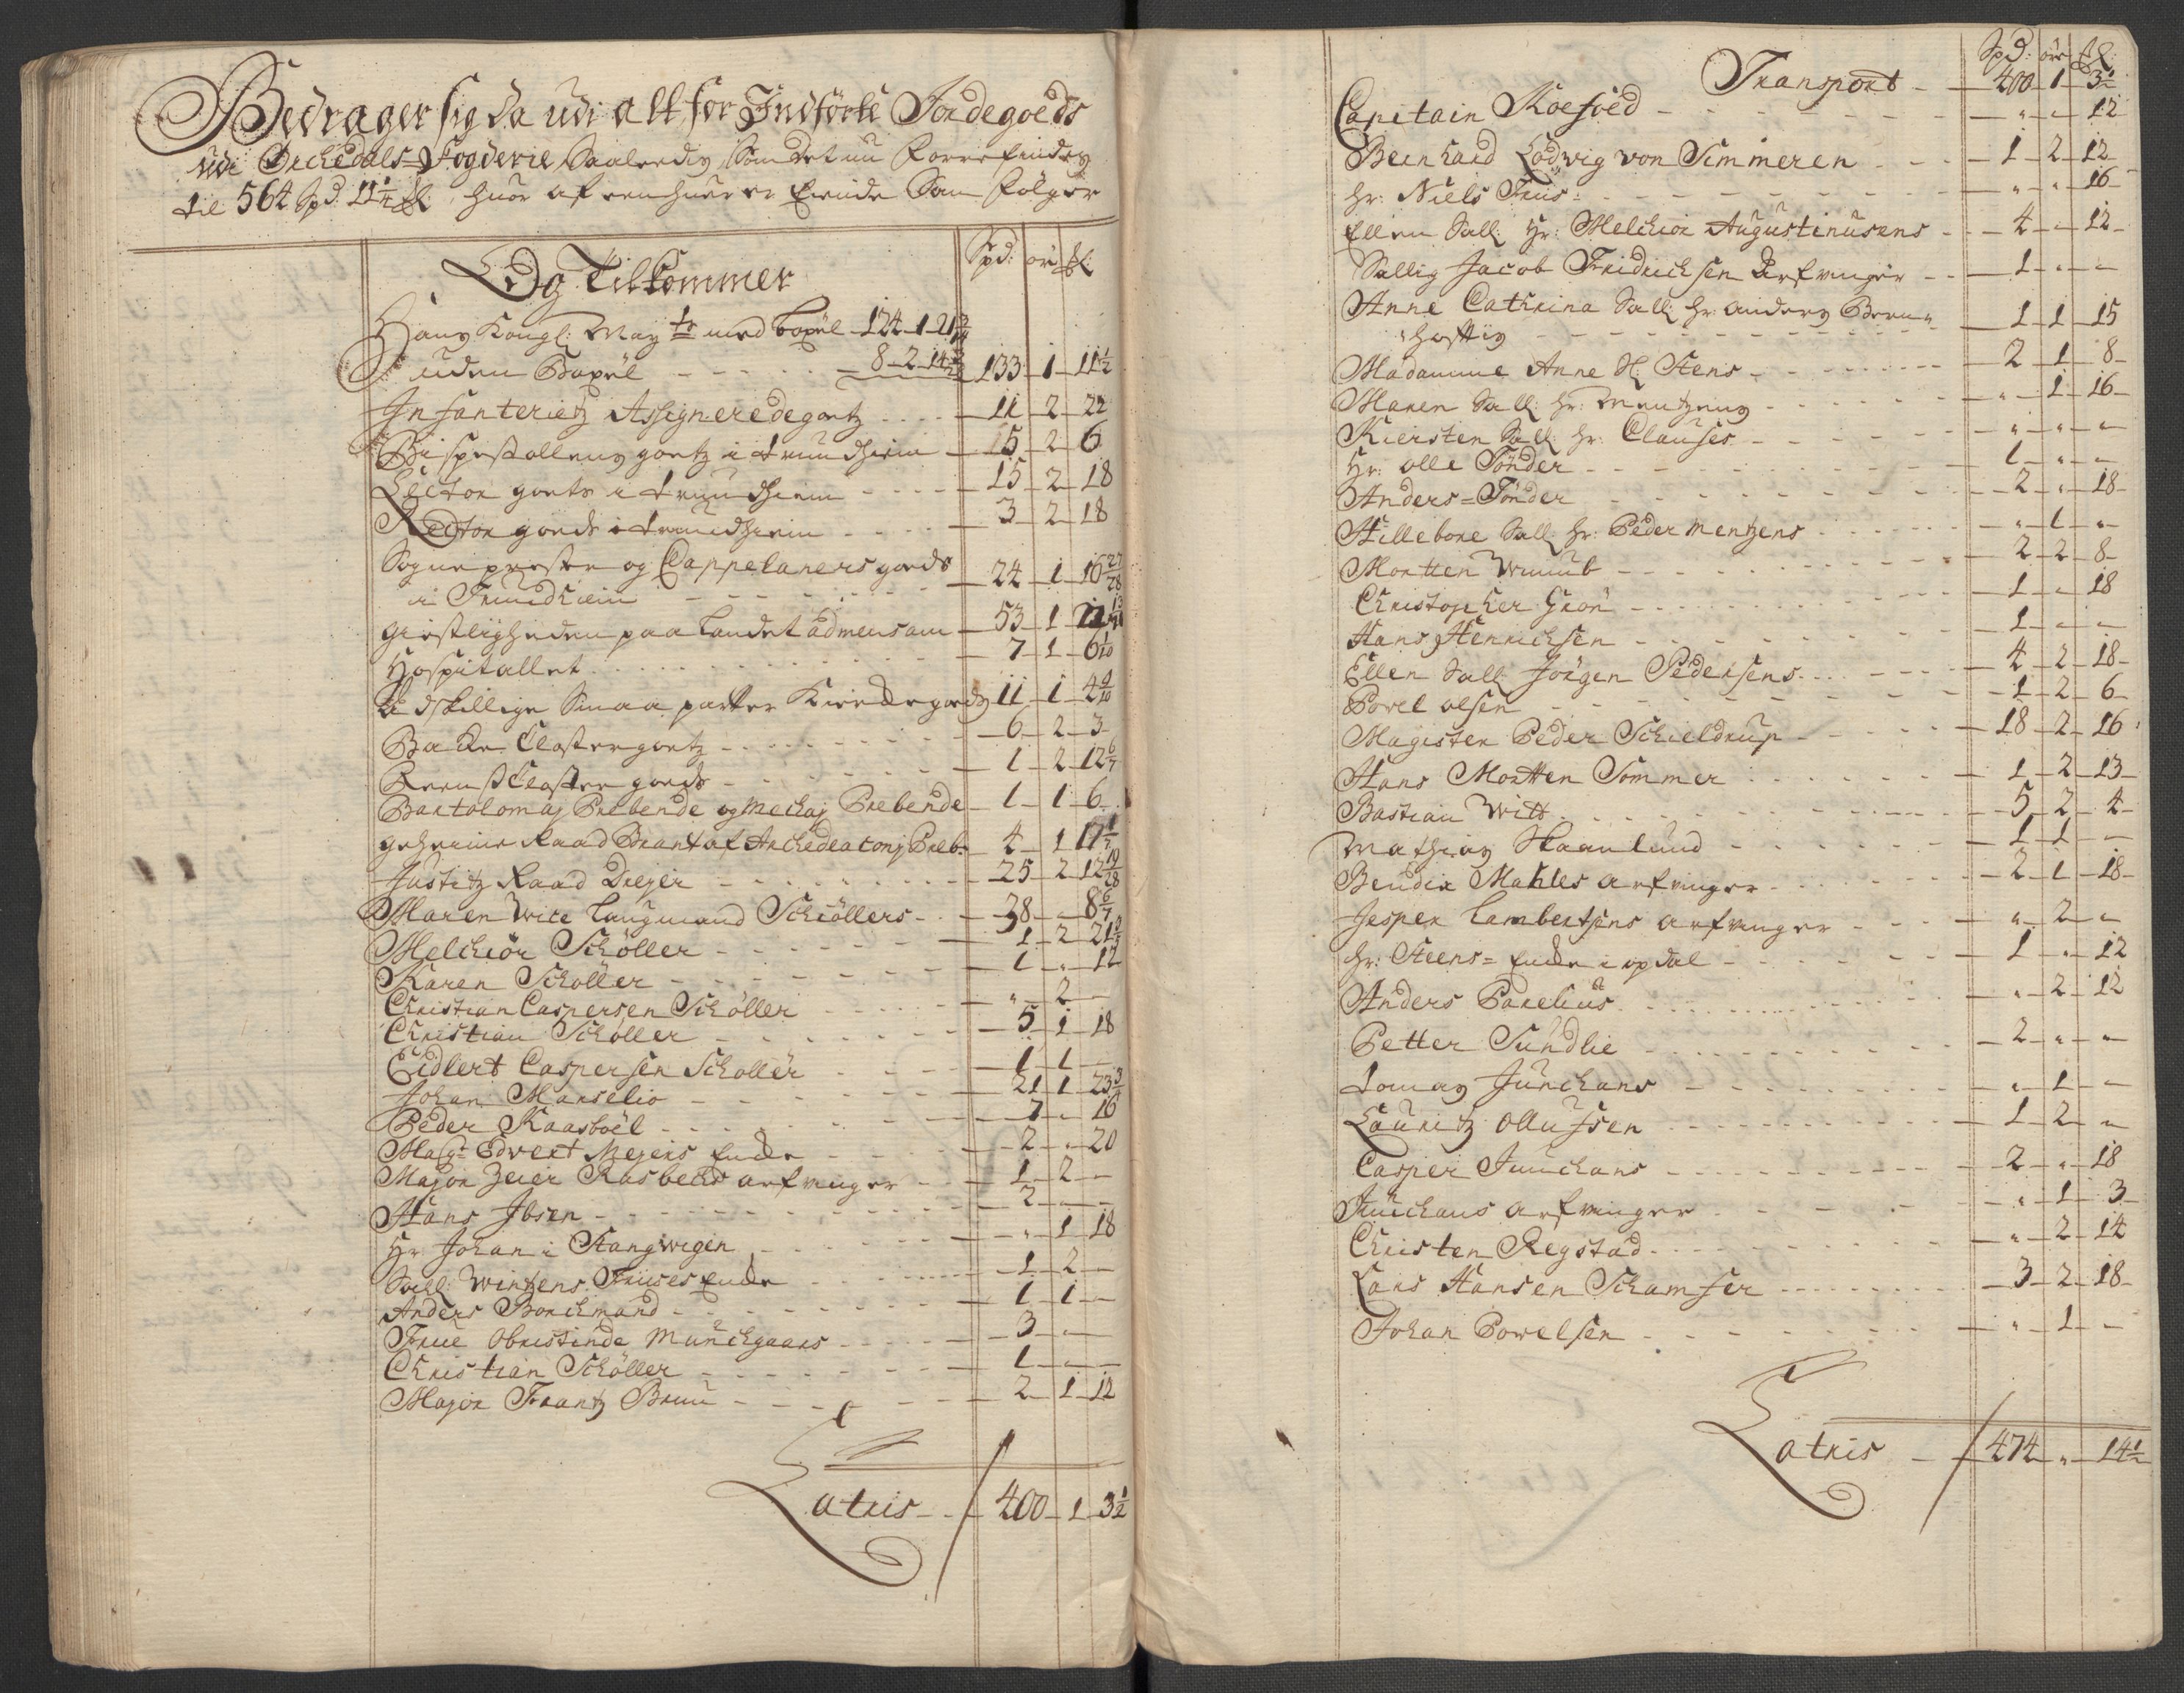 Bedrager sig da udi alt for Indförte Jordegoeds
udi Orckedals-Fogderie, Saaledis Som det nu Forrefindes
til 564 Spd: 11¼ ℔: huor af een huer er Eiende Som følger
Spd: ör ℔:
Og Tilkommer
Hans Kongl: May:tz med Boxel 124-1-21
uden Boxel 8-2-14 133-1-11½
Infanteriets Assigneredegoetz 11-2-22
Bispestollens goetz i Trundhiem 15-2-6
Lector goets i Trundhiem 15-2-18
Rector goeds i Trundhiem 3-2-18
Sogneprester og Cappelaners goeds
i Trundhiem 24-1-16 27/28
Giestligheden paa Landet ad mensam 53-1-
Hospitallet 7-1-6 1/10
Adskillige Smaa parter Kierckegoeds 11-1-4 4/10
Backe Closter goetz 6-2-3
Reens Closter goeds 1-2-12 6/7
Bartolomaj Prebende og Mechaj Prebende 1-1-6
geheime Raad Brant af Archedeaconj Preb: 4-1-17 1/7
Justitz Raad Dreyer 25-2-12 19/28
Maren Vice Laugmand Schöllers 38-"-8 6/7
Melchior Schöller 1-2-21
Karen Schöller 1-"-12
Christian Caspersen Schöller "-2-
Christian Schöller 5-1-18
Eidlert Caspersen Schöller 1-1-
Johan Marselio 21-1-23
Peder Kaasböel 7-"-16
Magr: Edvert Meyers Encke 2-"-20
Major Zeier Rasbechs arfvinger 1-2-
Hans Ibsen 2-
Hr: Johan i Stangwigen "-1-18
Sall: Wintzens Friises Encke 1-2-
Anders Borchmand 1-1-
Frue Obristinde Münchgaars 3-
Christian Schöller 1-
Major Frantz Bruu 2-1-12
Latris 400-1-3½
Spd: ör ℔:
Transport 400-1-3½
Capitain Koefoed "-"-12
Bernhard Lodwig von Simmeren 1-2-12
Hr: Niels Friis: "-"-16
Ellen Sall: Hr: Melchior Augustinusens 4-"-12
Sallig Jacob Fridrichsen Arfvinger 1-"-"
Anne Cathrina Sall: Hr: Anders Bern=
hoftig 1-1-15
Madamme Anne Sl: Stens 2-1-8
Maren Sall: Hr: Mentzens "-1-16
Kiersten Sall: Hr: Clauses "-"-"
Hr: Olle Tönder 1-"-"
Anders=Tönder 2-"-18
Hillebore Sall: Hr: Peder Mentzens "-1-"
Mortten Wmub 2-2-8
Christopher Gron 1-"-18
Hans Henrichsen 1-"-"
Ellen Sall: Jörgen Pedersens 4-2-18
Povel olsen 1-2-6
Magister Peder Schieldrup 18-2-16
Hans Mortten Sommer 1-2-13
Bastian Witt 5-2-4
Mathias Skaanlund 1-1-
Bendix Mahles arfvinger 2-1-18
Jesper Lambertsens arfvinger "-2-"
Hr: Steens= Encke i opdal 1-"-12
Anders Parelius "-2-12
Petter Sundlie 2-"-"
Tomas Junchans "-1-
Lauritz Ollufsen 1-2-"
Casper Junchans 2-"-18
Junchans arfvinger "-1-3
Christen Regstad "-2-14
Lars Hansen Schamfer 3-2-18
Johan Powelsen "-1-
Latris 474-"-14½